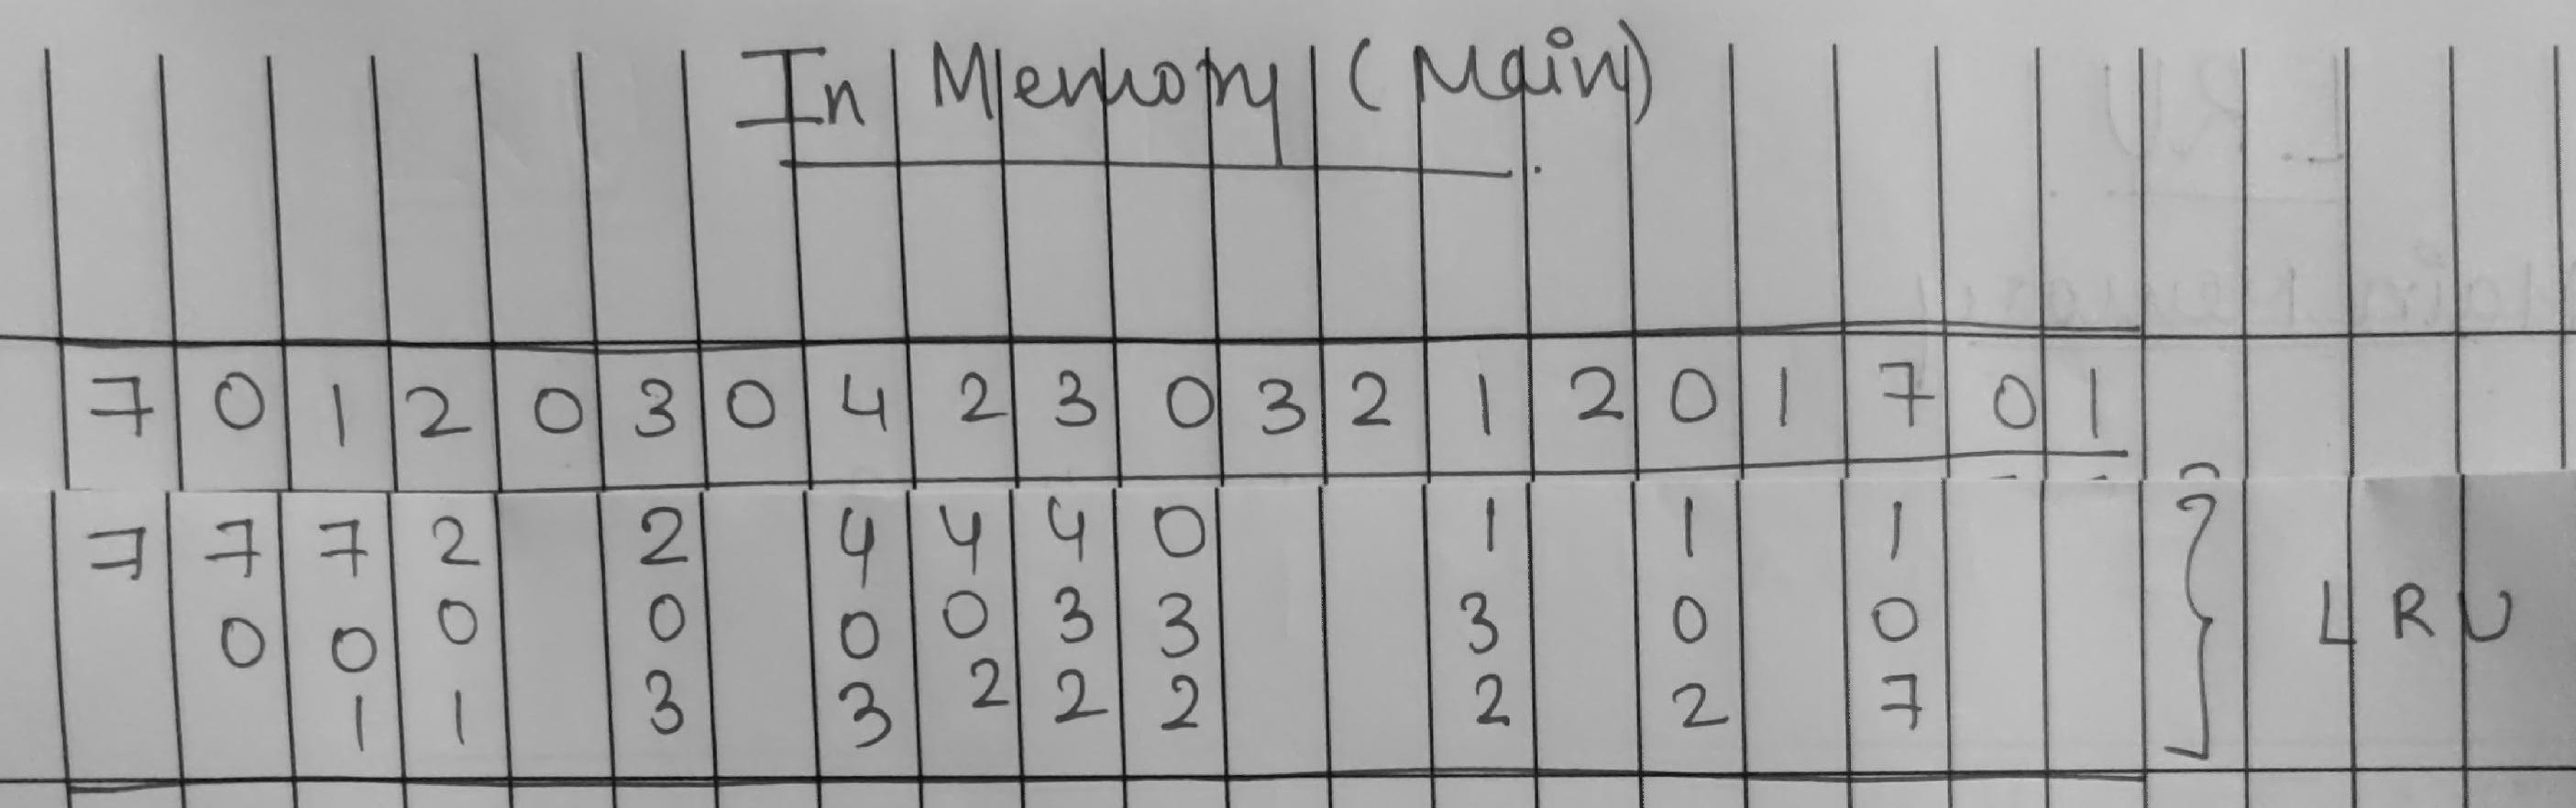 In Memory (Main)
7 0 1 2 0 3 0 4 2 3 0 3 2 1 2 0 1 7 0 1
7 7 7 2 2 4 4 4 0 1 1 1
0 0 0 0 0 0 3 3 3 0 0 L R U
1 1 3 3 2 2 2 2 2 7